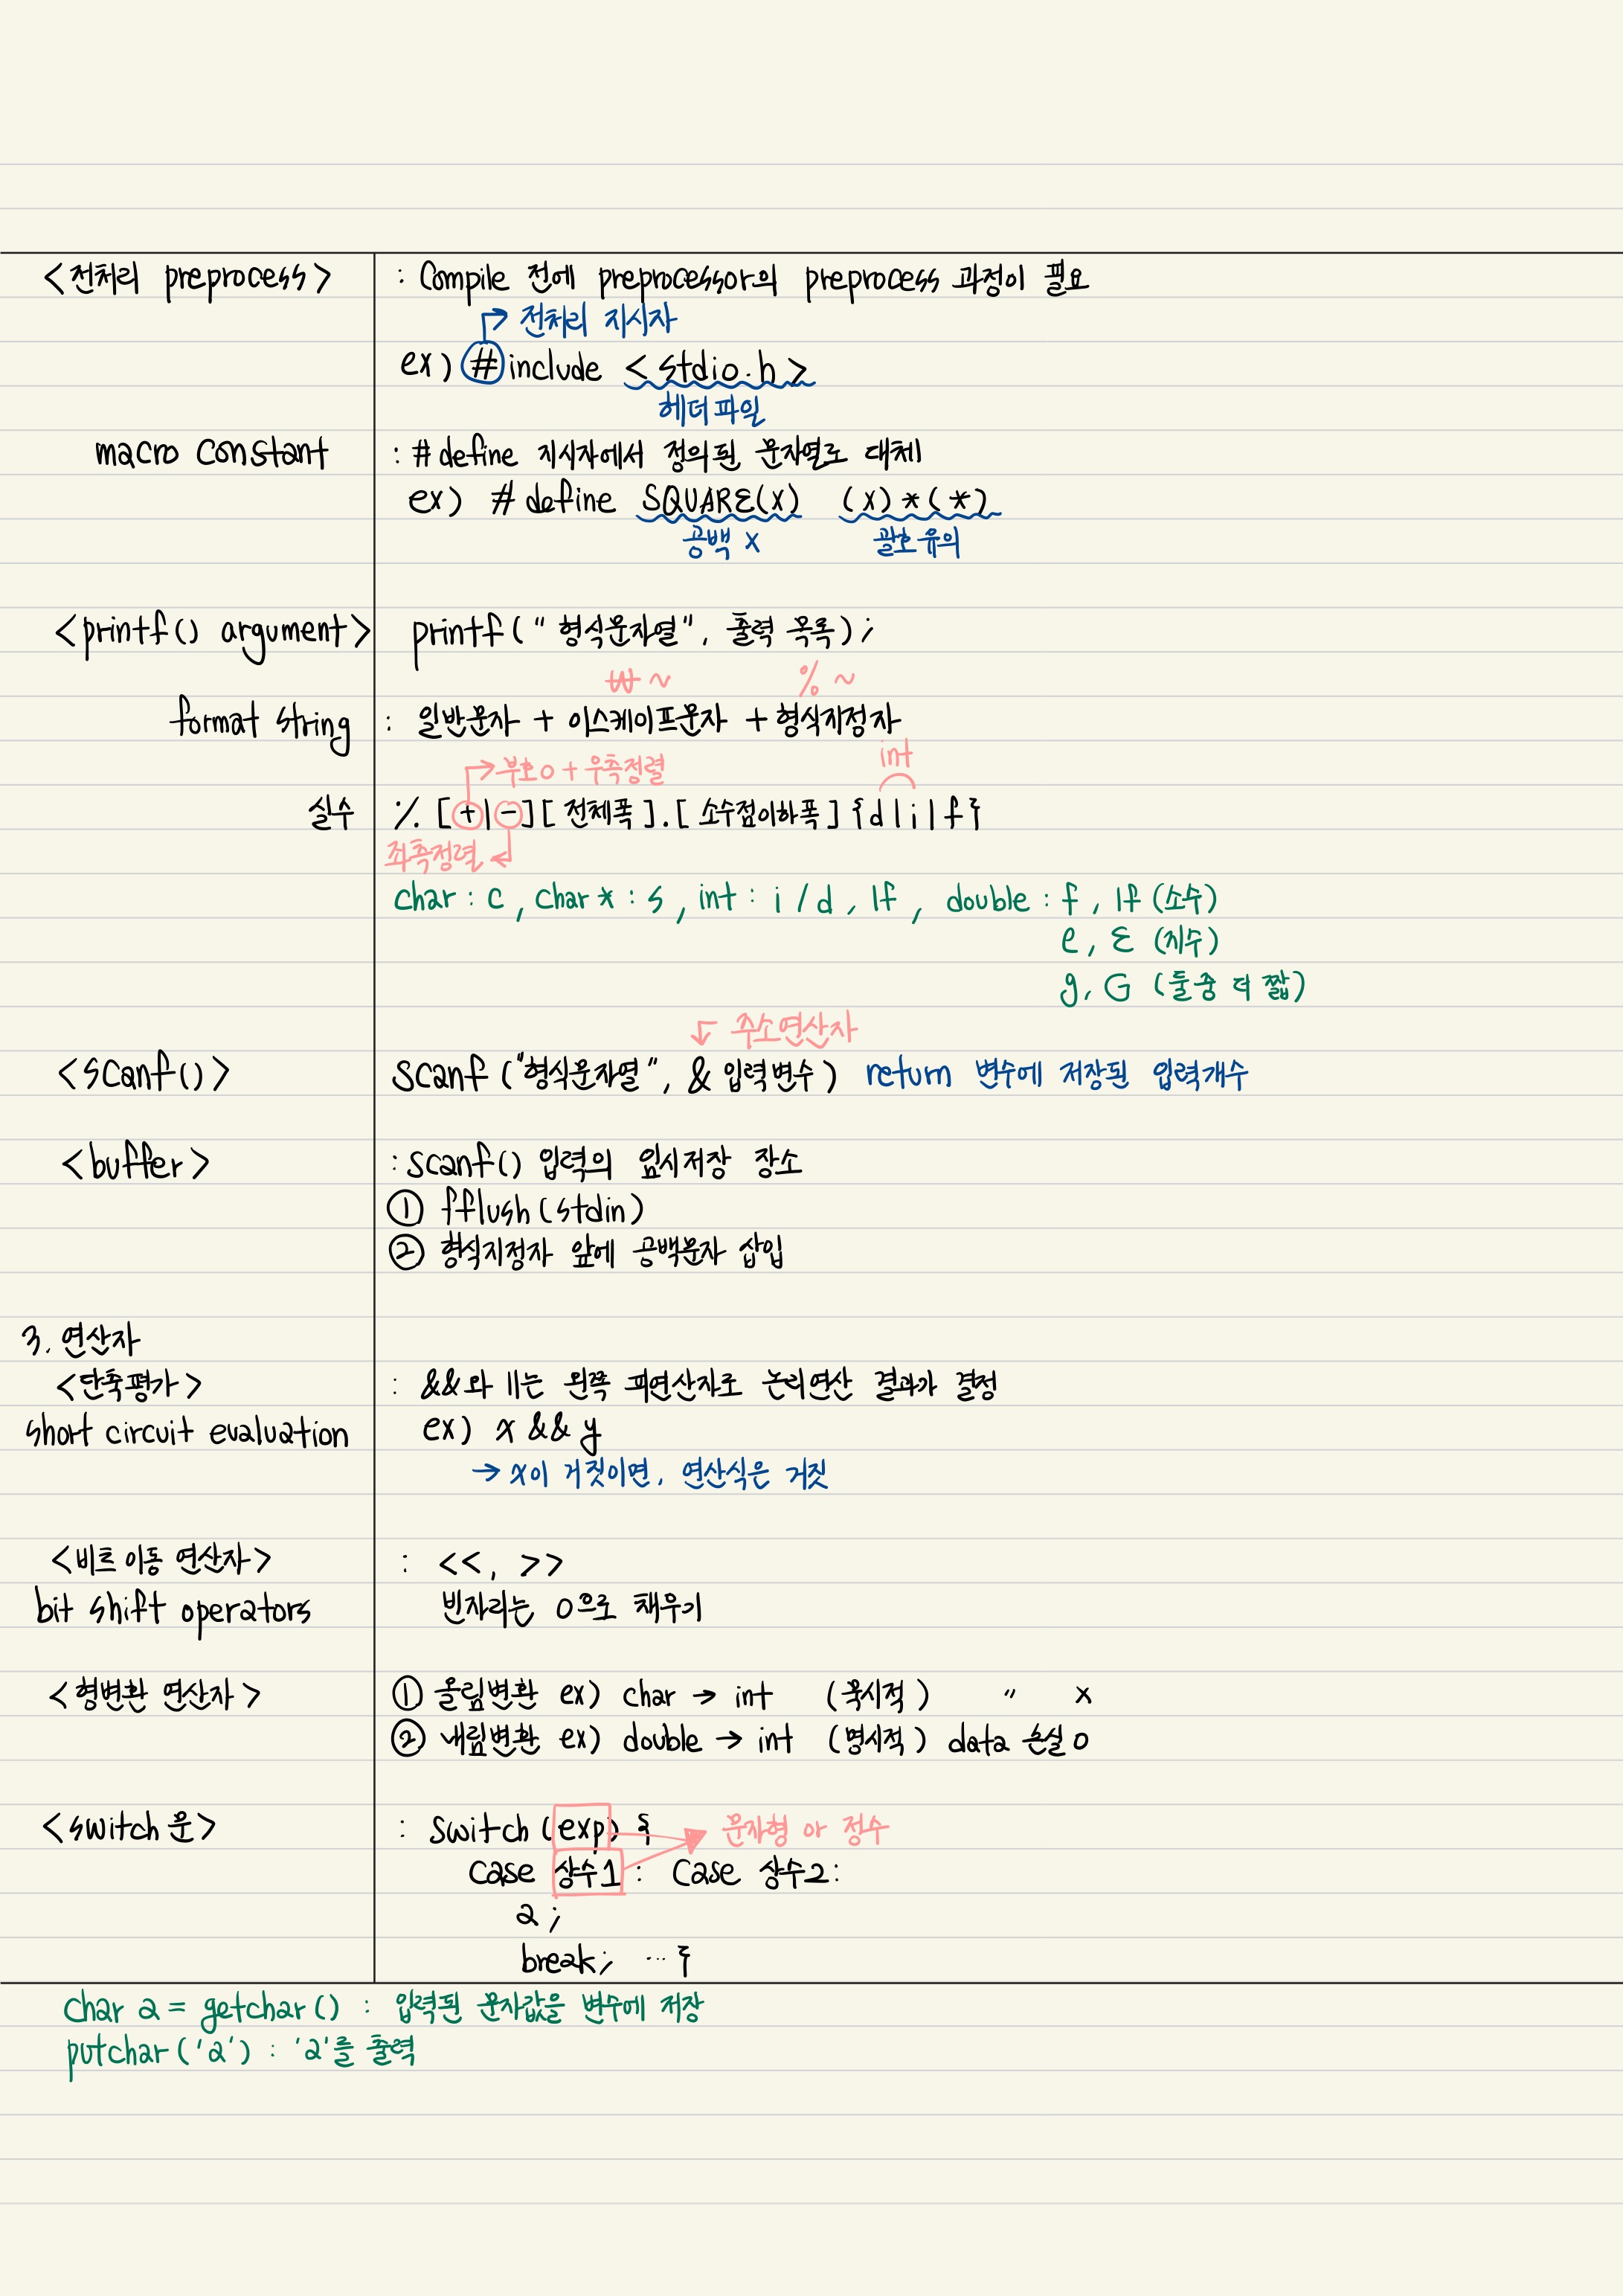 <전처리 preprocess> : Compile 전에 preprocessor의 preprocess 과정이 필요
전처리 지시자
ex) #include <stdio.h>
헤더파일
macro constant : #define 지시자에서 정의된 문자열로 대체
ex) #define SQUARE(X) (X)*(*)
공백 x 괄호유의
<printf() argument> printf("형식문자열", 출력 목록);
₩~ %~
format string : 일반문자 + 이스케이프문자 + 형식지정자
부호o + 우측정렬 int
실수 %[+|-][전체폭].[소수점이하폭]{d|i|f}
좌측정렬
char : c, char* : s, int : i/d, lf, double : f, lf (소수)
e, E (지수)
g, G (둘중 더 짧)
주소연산자
<scanf()> scanf("형식문자열", & 입력변수) return 변수에 저장된 입력개수
<buffer> : scanf() 입력의 임시저장 장소
① fflush(stdin)
② 형식지정자 앞에 공백문자 삽입
3. 연산자
<단축평가> : &&와 ||는 왼쪽 피연산자로 논리연산 결과가 결정
short circuit evaluation ex) x && y
→ x이 거짓이면, 연산식은 거짓
<비트 이동 연산자> : <<, >>
bit shift operators 빈자리는 0으로 채우기
<형변환 연산자> ① 올림변환 ex) char → int (묵시적) " x
② 내림변환 ex) double → int (명시적) data 손실 o
<switch 문> : switch (exp) { 문자형 or 정수
case 상수1 : case 상수2 :
a ;
break; … }
char a = getchar() : 입력된 문자값을 변수에 저장
putchar('a') : 'a'를 출력